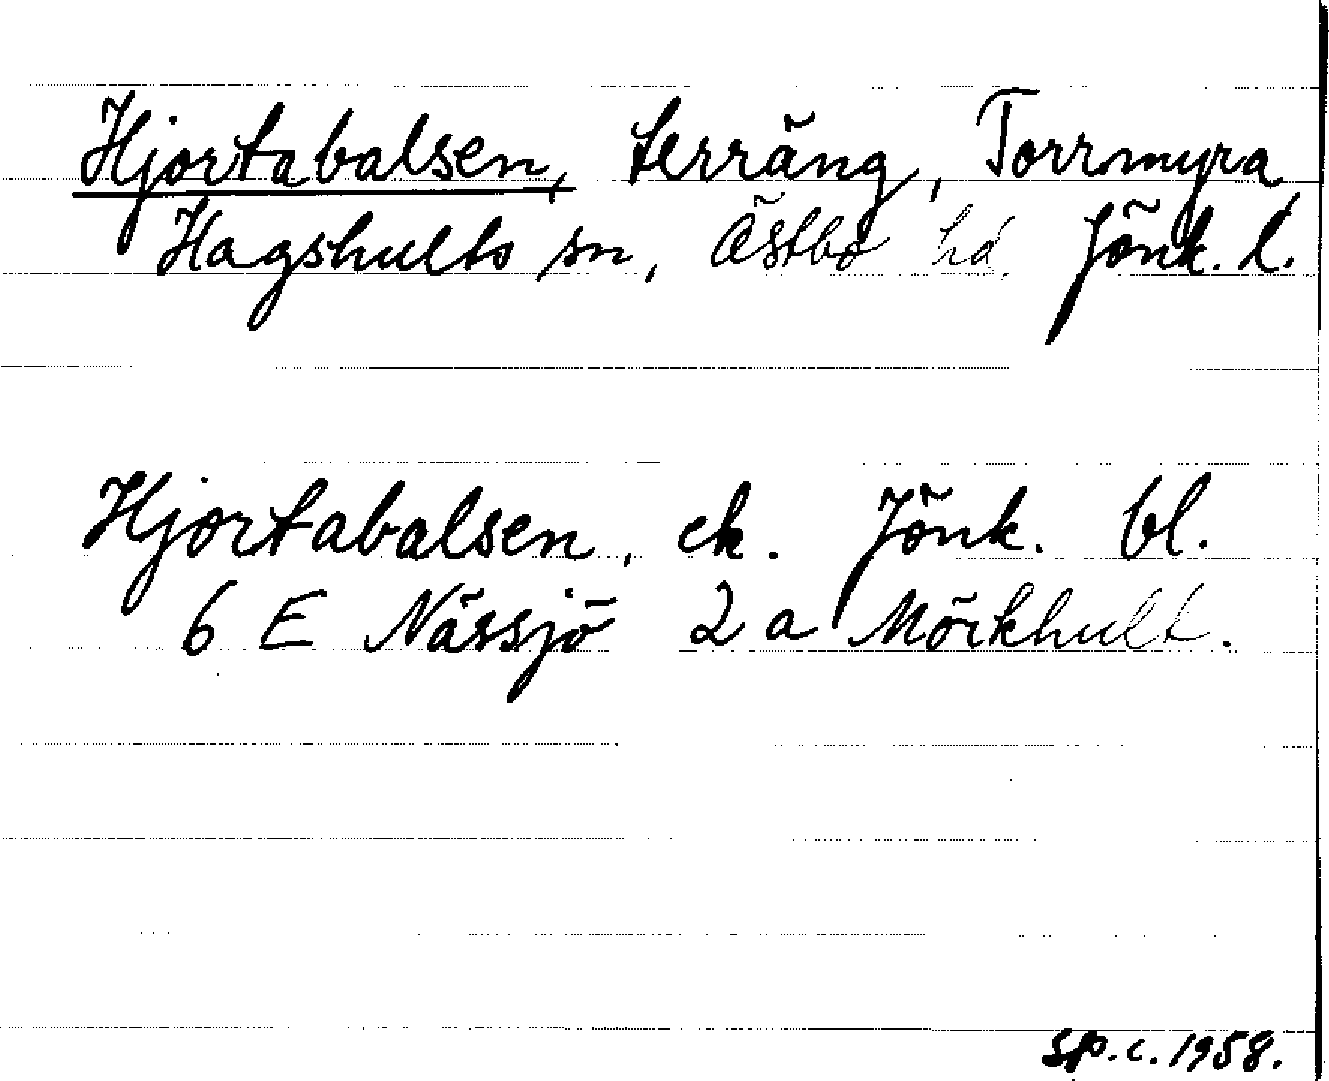 Hjortabalsen, terräng, Torrmyra
Hagshults sn, Östbo hd. Jönk. l.
Hjortabalsen, ek. Jönk. bl.
6 E Nässjö 2 a Mörkhult.
sp.c. 1958.